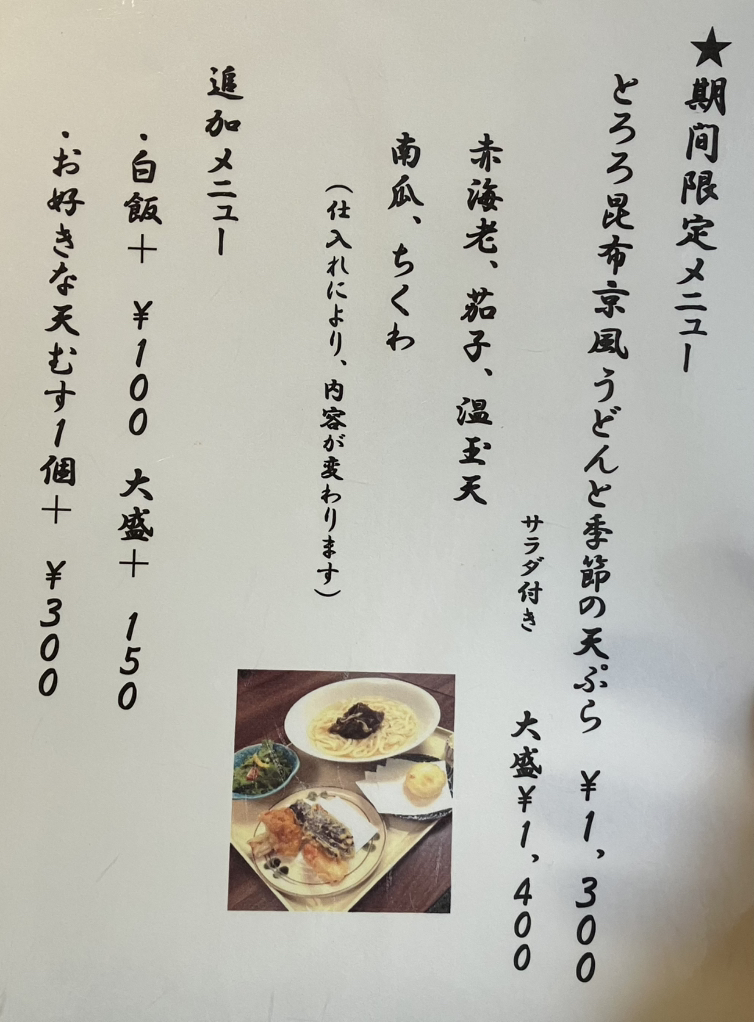 ★期間限定メニュー
とろろ昆布京風うどんと季節の天ぷら ¥1,300
サラダ付き 大盛¥1,400
赤海老、茄子、温玉天
南瓜、ちくわ
(仕入れにより、内容が変わります)
追加メニュー
・白飯+ ¥100 大盛+ 150
・お好きな天むす1個+ ¥300